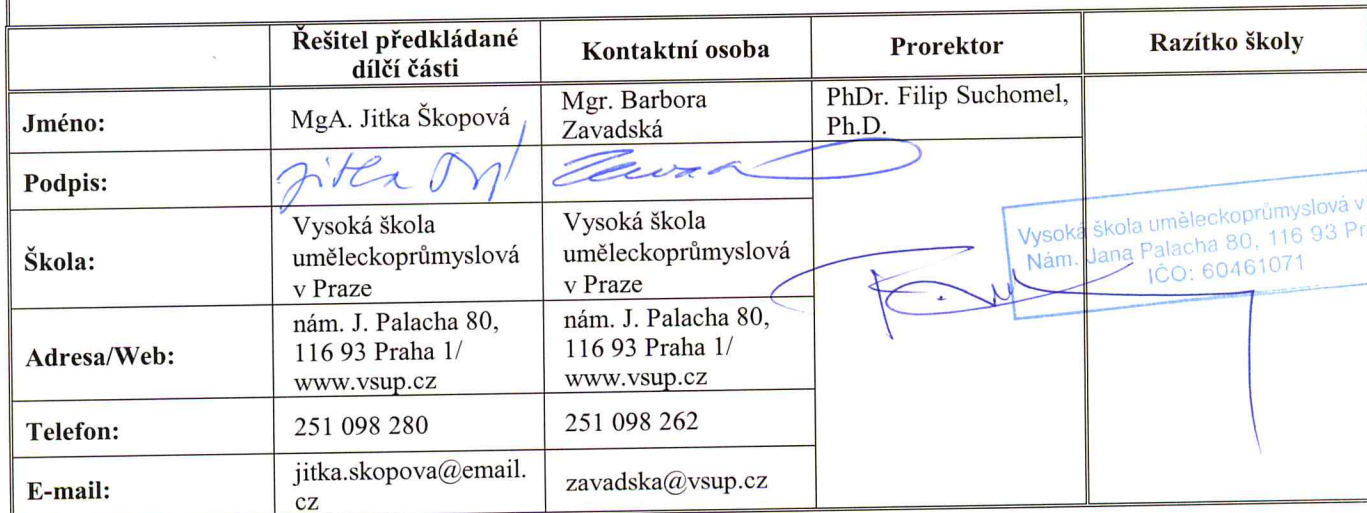 Řešitel předkládané dílčí části
Kontaktní osoba
Prorektor
Razítko školy
Jméno:
MgA. Jitka Škopová
Mgr. Barbora
Zavadská
PhDr. Filip Suchomel,
Ph.D.
Podpis:
Jitka
Škola:
Vysoká škola
uměleckoprůmyslová
v Praze
Vysoká škola
uměleckoprůmyslová
v Praze
Vysoká škola uměleckoprůmyslová v
Nám. Jana Palacha 80, 116 93 Pr
IČO: 60461071
Adresa/Web:
nám. J. Palacha 80,
116 93 Praha 1/
www.vsup.cz
nám. J. Palacha 80,
116 93 Praha 1/
www.vsup.cz
Telefon:
251 098 280
251 098 262
E-mail:
jitka.skopova@email.
cz
zavadska@vsup.cz